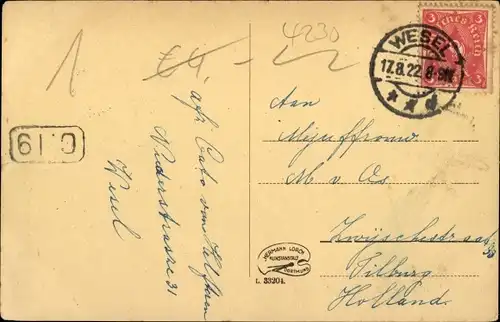 4230
WESEL
17.8.22. 8-9N.
* * d
3 3
Deutsches Reich
Aan
Mejuffrouw
M v Os
Tilburg
Holland
afz Cato van
Niederstrasse 31
Wesel
C.19
HERMANN LORCH
KUNSTANSTALT
DORTMUND
L. 33204.